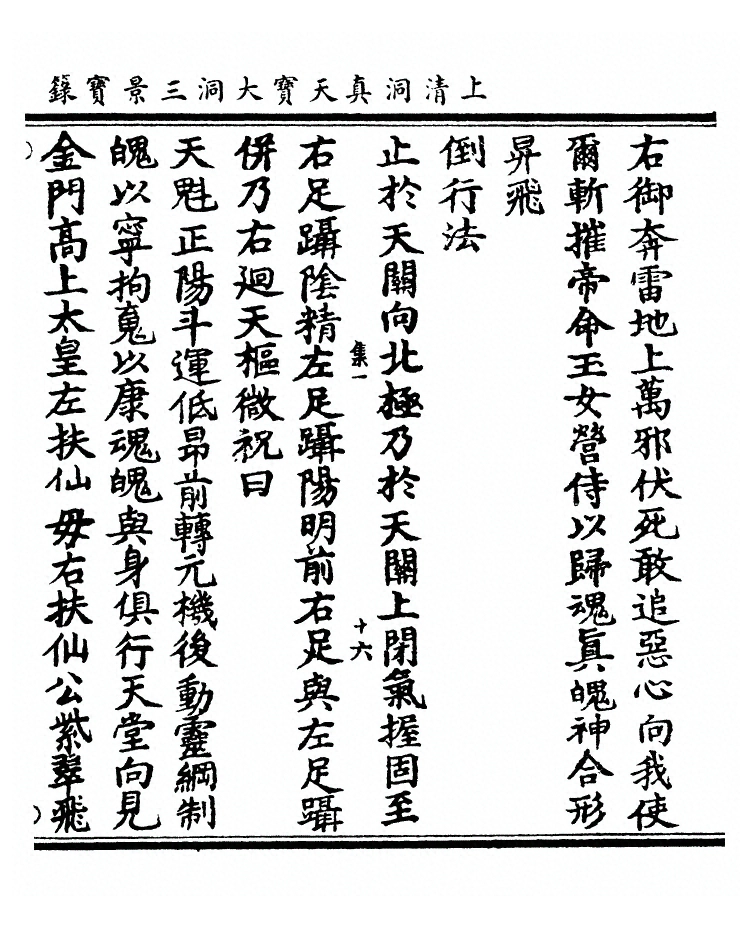 上清洞真天寶大洞三景寶籙
右御奔雷地上萬邪伏死敢追惡心向我使
爾斬摧帝命王女營侍以歸魂真魄神合形
昇飛
倒行法
止於天關向北極乃於天關上閉氣握固至
集一
十六
右足躡陰精左足躡陽明前右足與左足躡
併乃右廻天樞微祝曰
天魁正陽斗運低昂前轉元機後動靈綱制
魄以寧拘䰟以康魂魄與身俱行天堂向見
金門高上太皇左扶仙毋右扶仙公紫翠飛